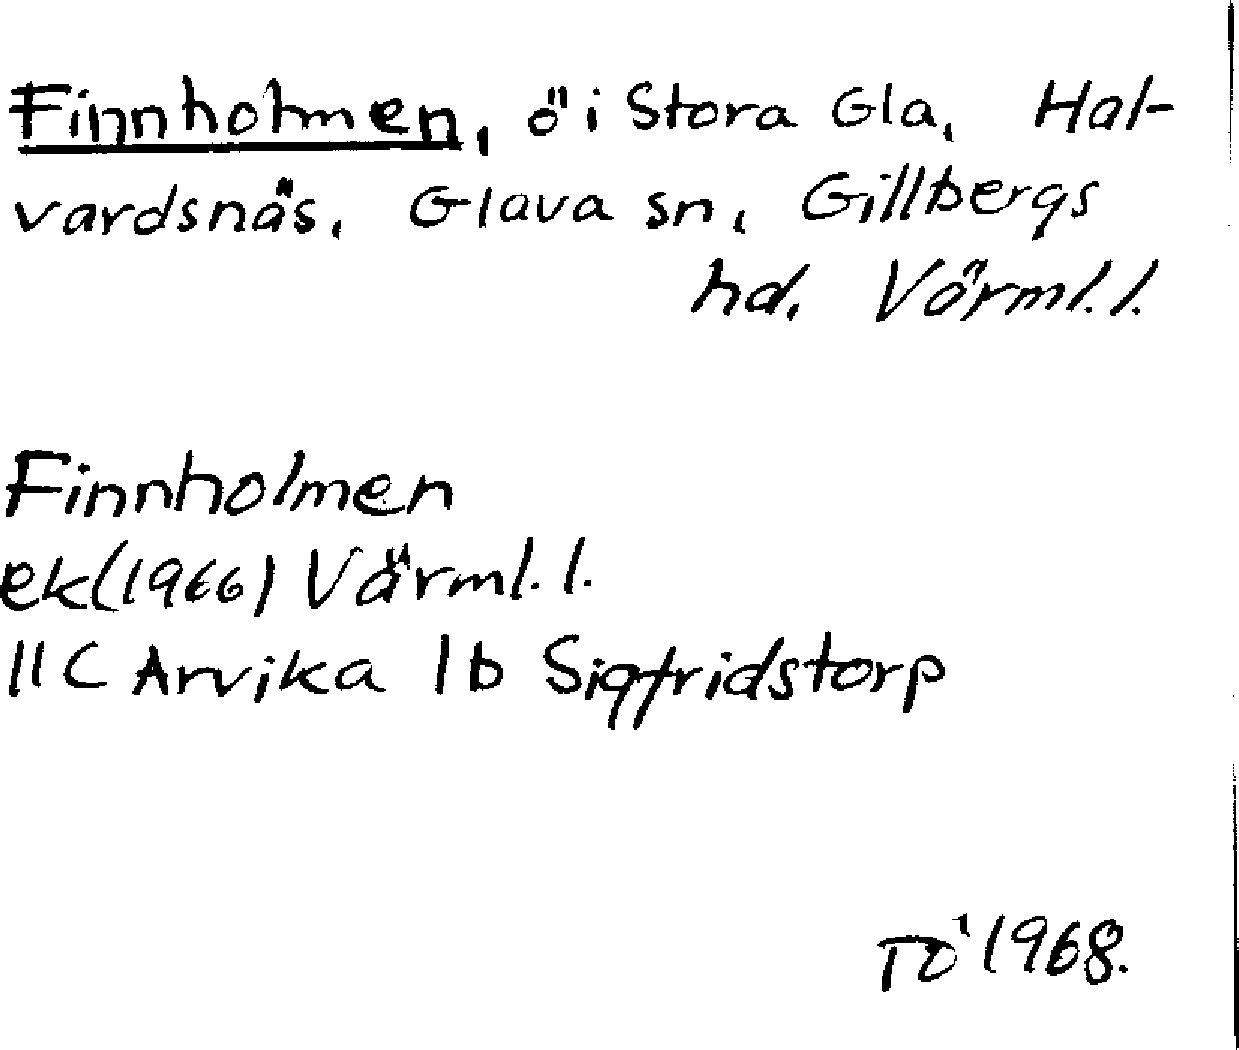 Finnholmen, ö i Stora Gla, Hal-
vardsnäs, Glava sn, Gillbergs
hd. Värml. l.
Finnholmen
ek (1966) Värml. l.
11C Arvika 1b Sigfridstorp
TÖ 1968.